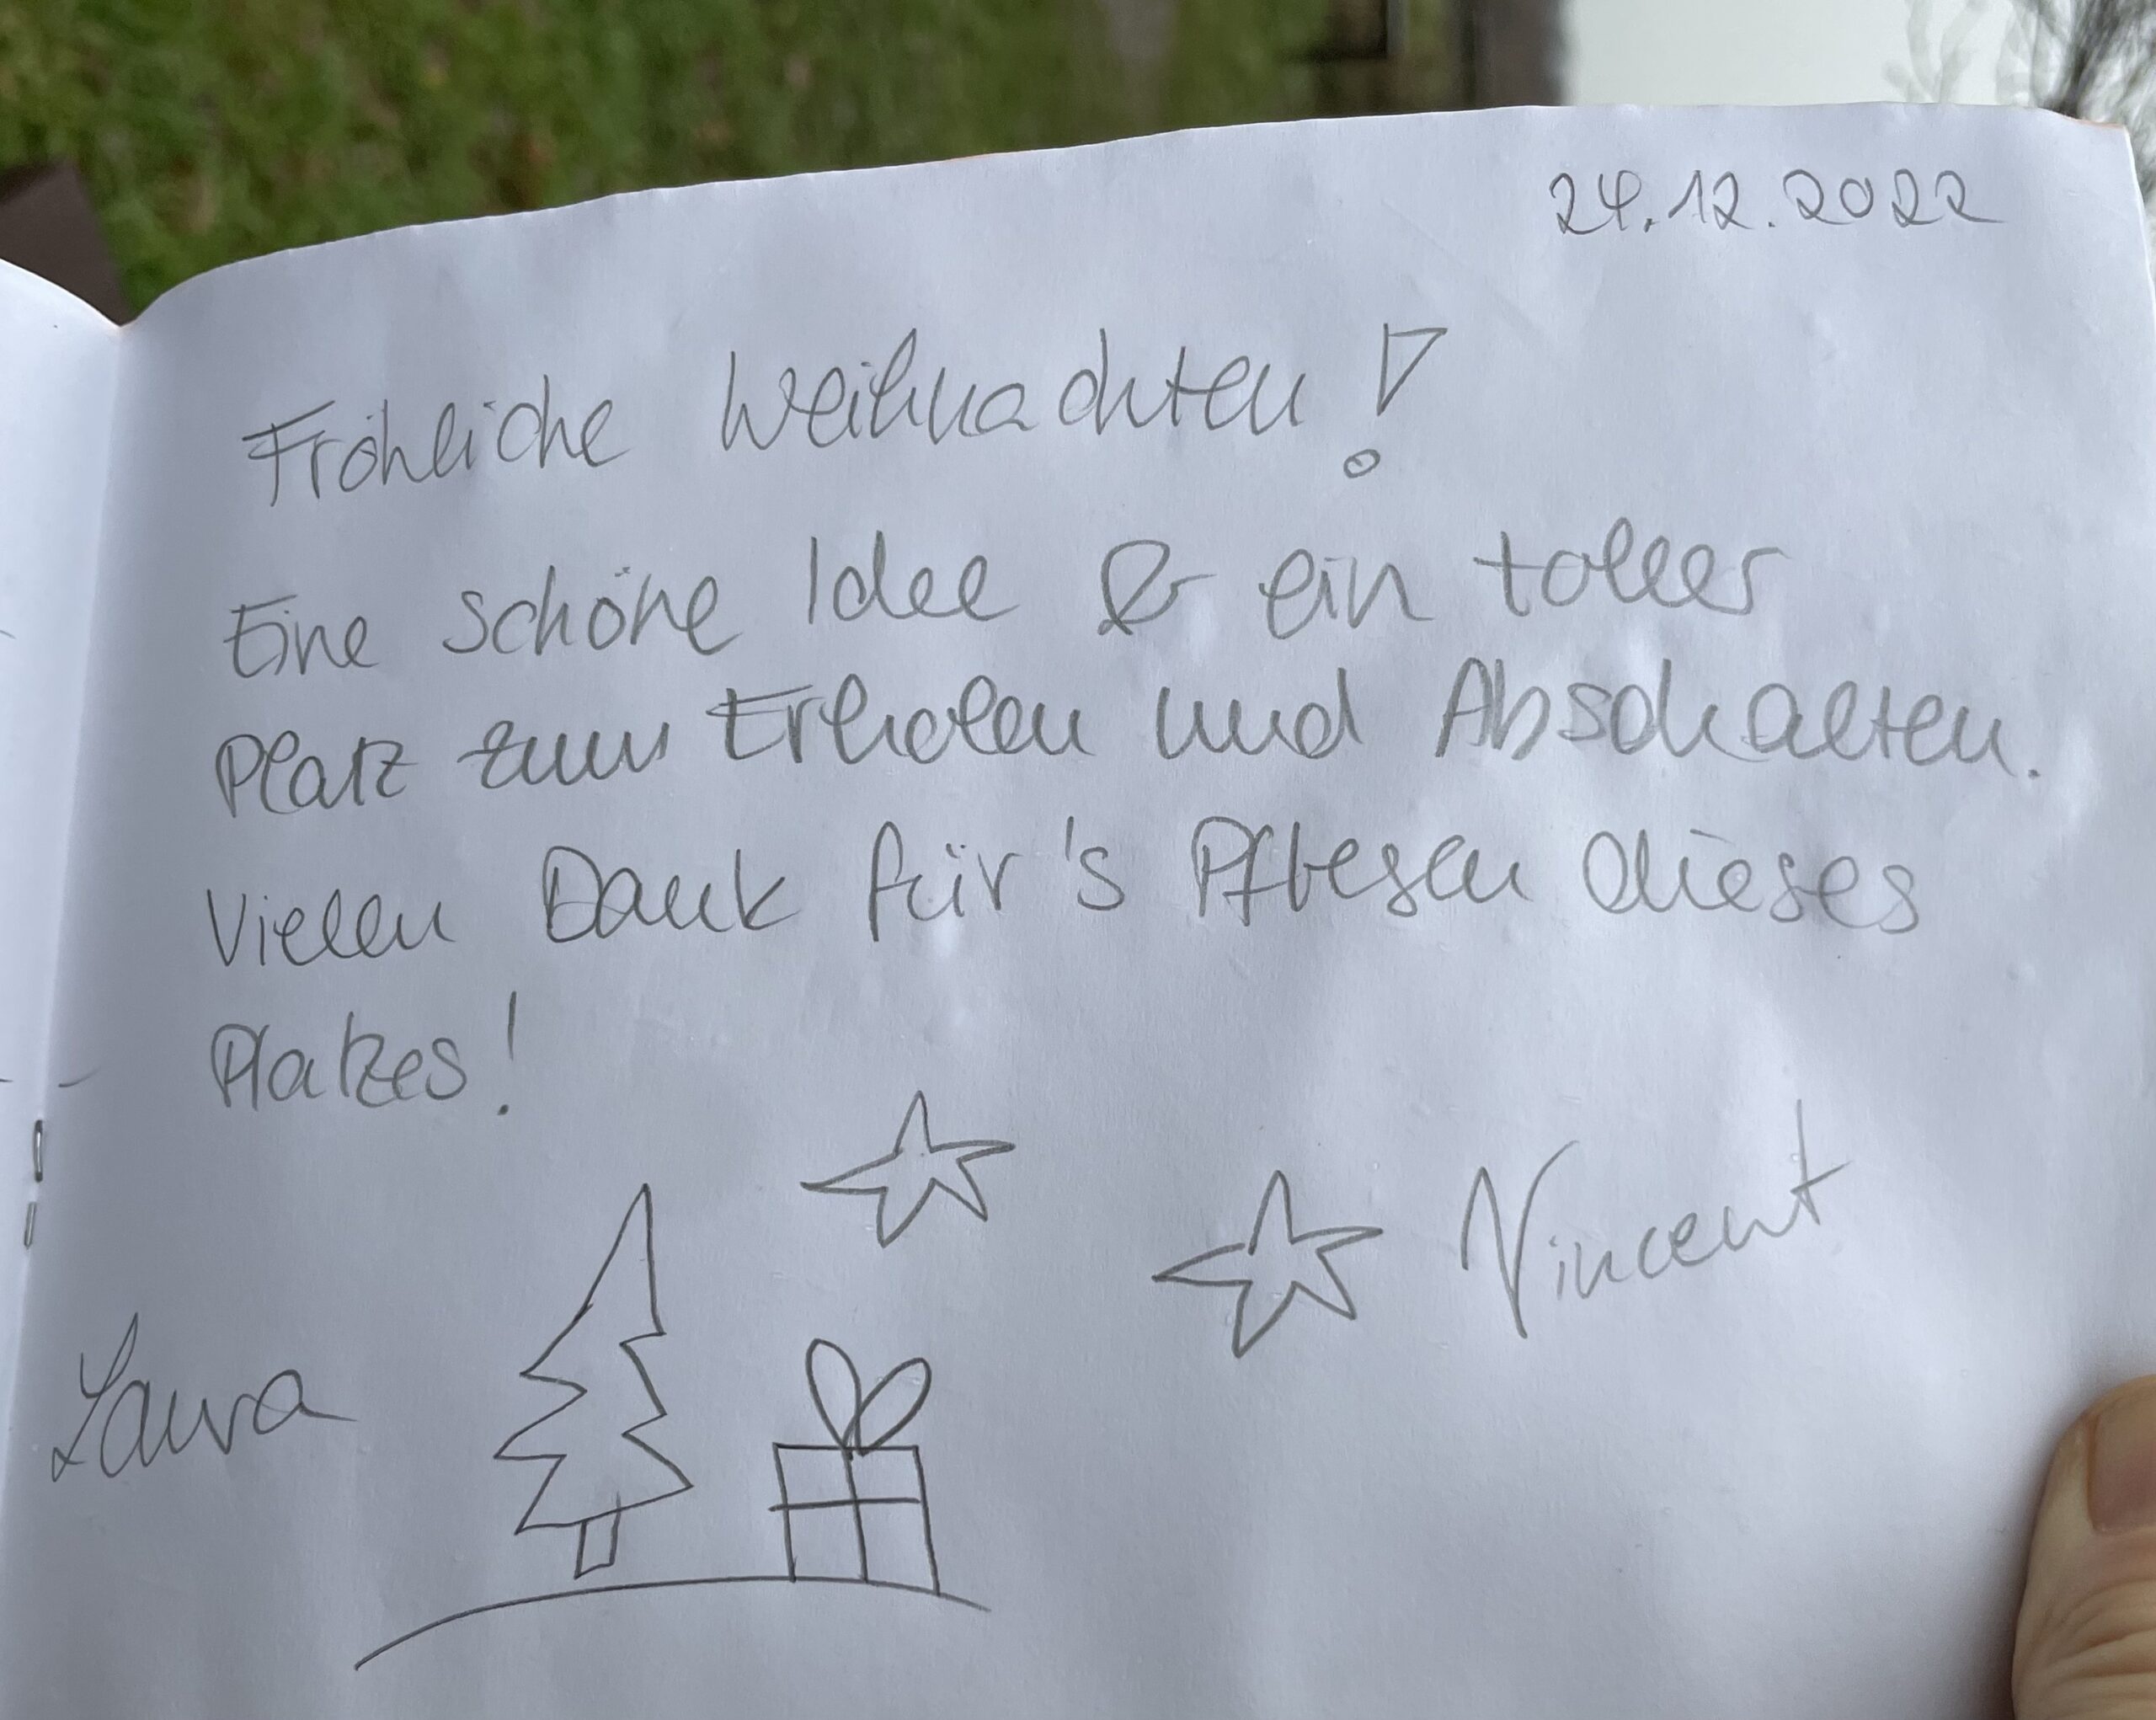 24.12.2022
Fröhliche Weihnachten!
Eine schöne Idee & ein toller
Platz zum Erholen und Abschalten.
Vielen Dank für's Pflegen dieses
Platzes!
Vincent
Laura